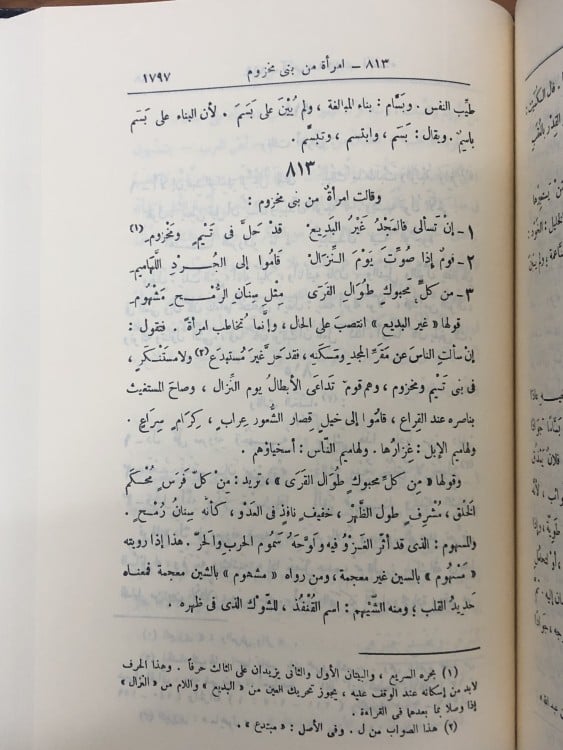 ٨١٣ – امرأة من بنى مخزوم ١٧٩٧
طيِّب النفس . وبَسَّام : بناء المبالغة ، ولم يُبْنَ على بَسَمَ . لأن البناء على بَسَم
باسِمٌ . ويقال : بَسَم ، وابتسم ، وتبسَّم .
٨١٣
وقالت امرأةٌ من بنى مخزوم :
١ – إنْ تسألى فالمَجْدُ غَيْرُ البَدِيعْ قَدْ حَلَّ فى تَيْمٍ ومَخْزُومِ (١)
٢ – قومٌ إذا صُوِّتَ يَوْمَ النِّزَالْ قَامُوا إلى الجُرْدِ اللَّهَامِيمِ
٣ – من كلِّ مَحبوكٍ طُوَالِ القَرَى مِثْلِ سِنَانِ الرُّمْحِ مَشْهُومِ
قولها « غير البديع » انتصبَ على الحال ، وإنَّما تُخاطب امرأةً . فتقول :
إن سألتِ الناسَ عن مَقَرِّ المجدِ ومَسكَنِه ، فقد حَلَّ غيرَ مُستبدَع (٢) ولا مستَنْكَرٍ ،
فى بنى تَيْم ومخزوم ، وهم قومٌ تَدَاعَى الأبطالُ يوم النِّزال ، وصاحَ المستغيث
بناصره عند القراع ، قامُوا إلى خيلٍ قِصار الشُّعور عِراب ، كِرَامٍ سِرَاعٍ .
ولهاميم الإبل : غِزارُها . ولهاميم النَّاس : أسخياؤهم .
وقولها « مِن كلِّ محبوكٍ طُوَالِ القَرَى » ، تريد : مِنْ كلِّ فَرَسٍ مُحْكَم
الخَلْق ، مُشْرِفٍ طول الظَّهْر ، خفيفٍ نافذٍ فى العَدْو ، كأنَّه سِنانُ رُمْحٍ .
والمسهوم : الذى قد أثَّر الغَزْوُ فيه ولوَّحَهُ سَمُوم الحرب والحَرِّ . هذا إذا رويته
« مَسْهُوم » بالسين غير معجمة ، ومن رواه « مشهوم » بالشين معجمة فمعناه
حَدِيدُ القلب ؛ ومنه الشَّيْهم : اسم القُنْفُذ ، للشَّوْك الذى فى ظهره .
(١) بحره السريع ، والبيتان الأول والثانى يزيدان على الثالث حرفاً . وهذا الحرف
لابد من إسكانه عند الوقف عليه ، يجوز تحريك العين من « البديع » واللام من « النزال »
إذا وصلا بما بعدهما فى القراءة .
(٢) هذا الصواب من ل . وفى الأصل : « مبتدع » .